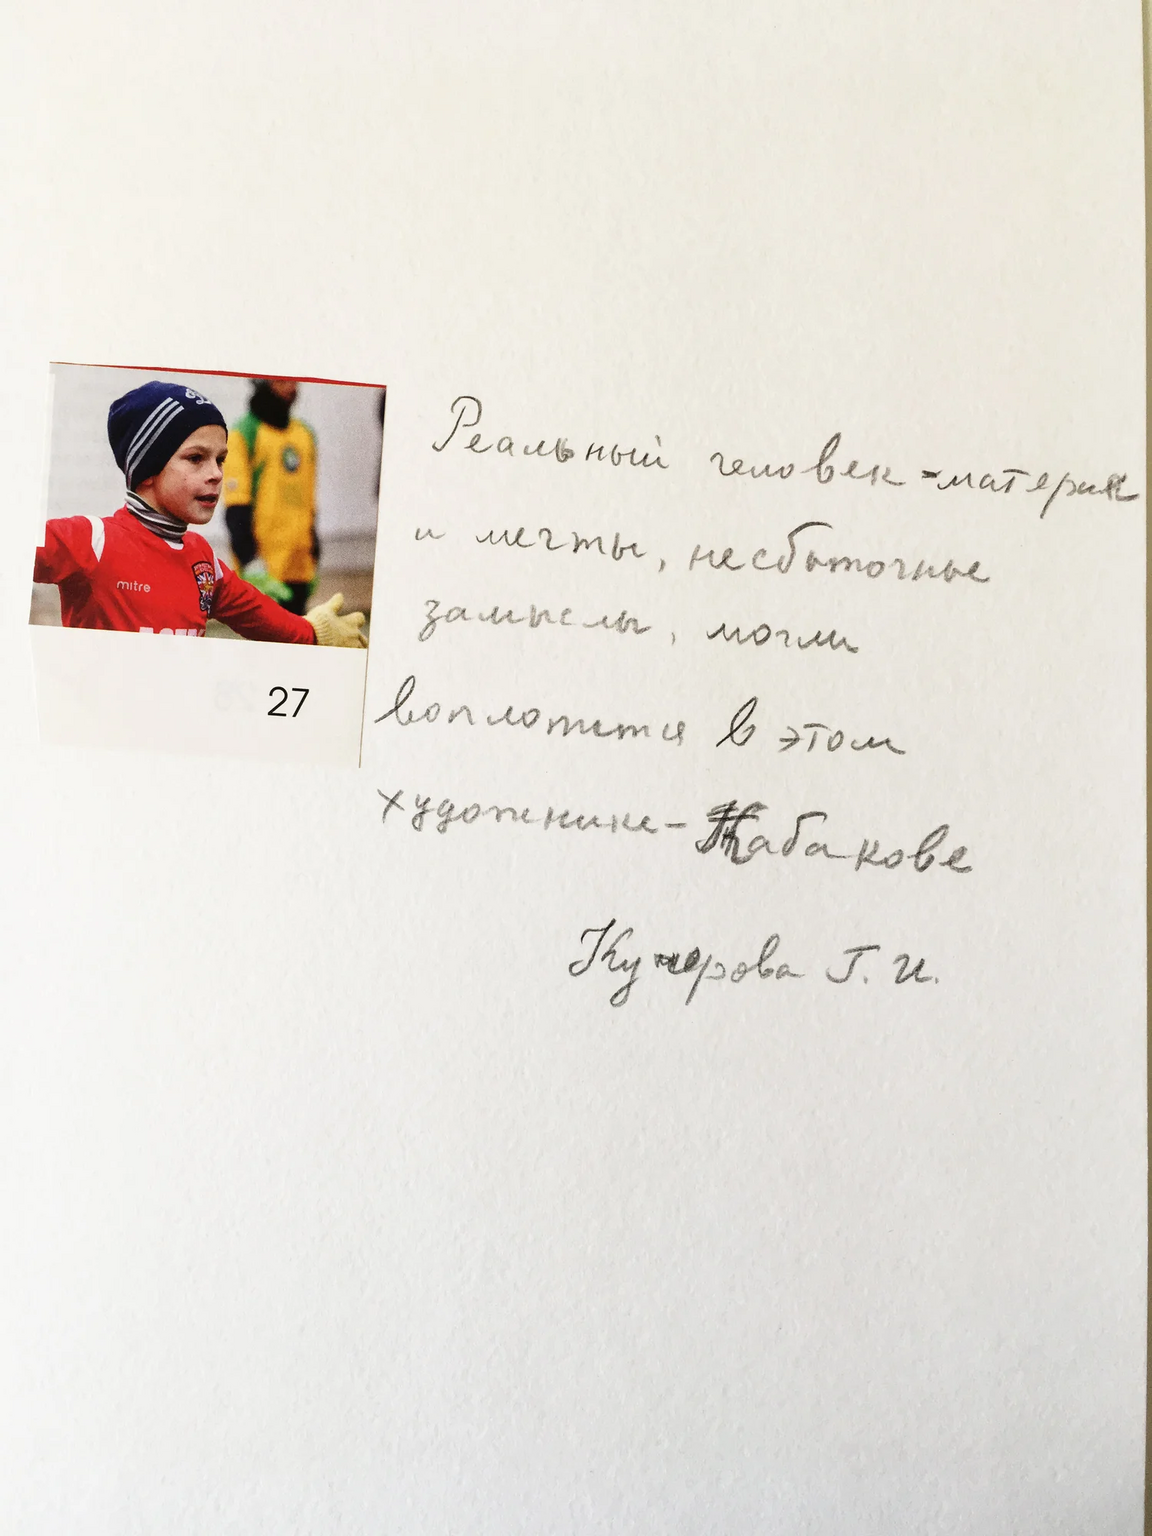 mitre
27
Реальный человек - материя
и мечты, несбыточные
замыслы, могли
воплотится в этом
художнике - Табакове
Кучерова Г. И.